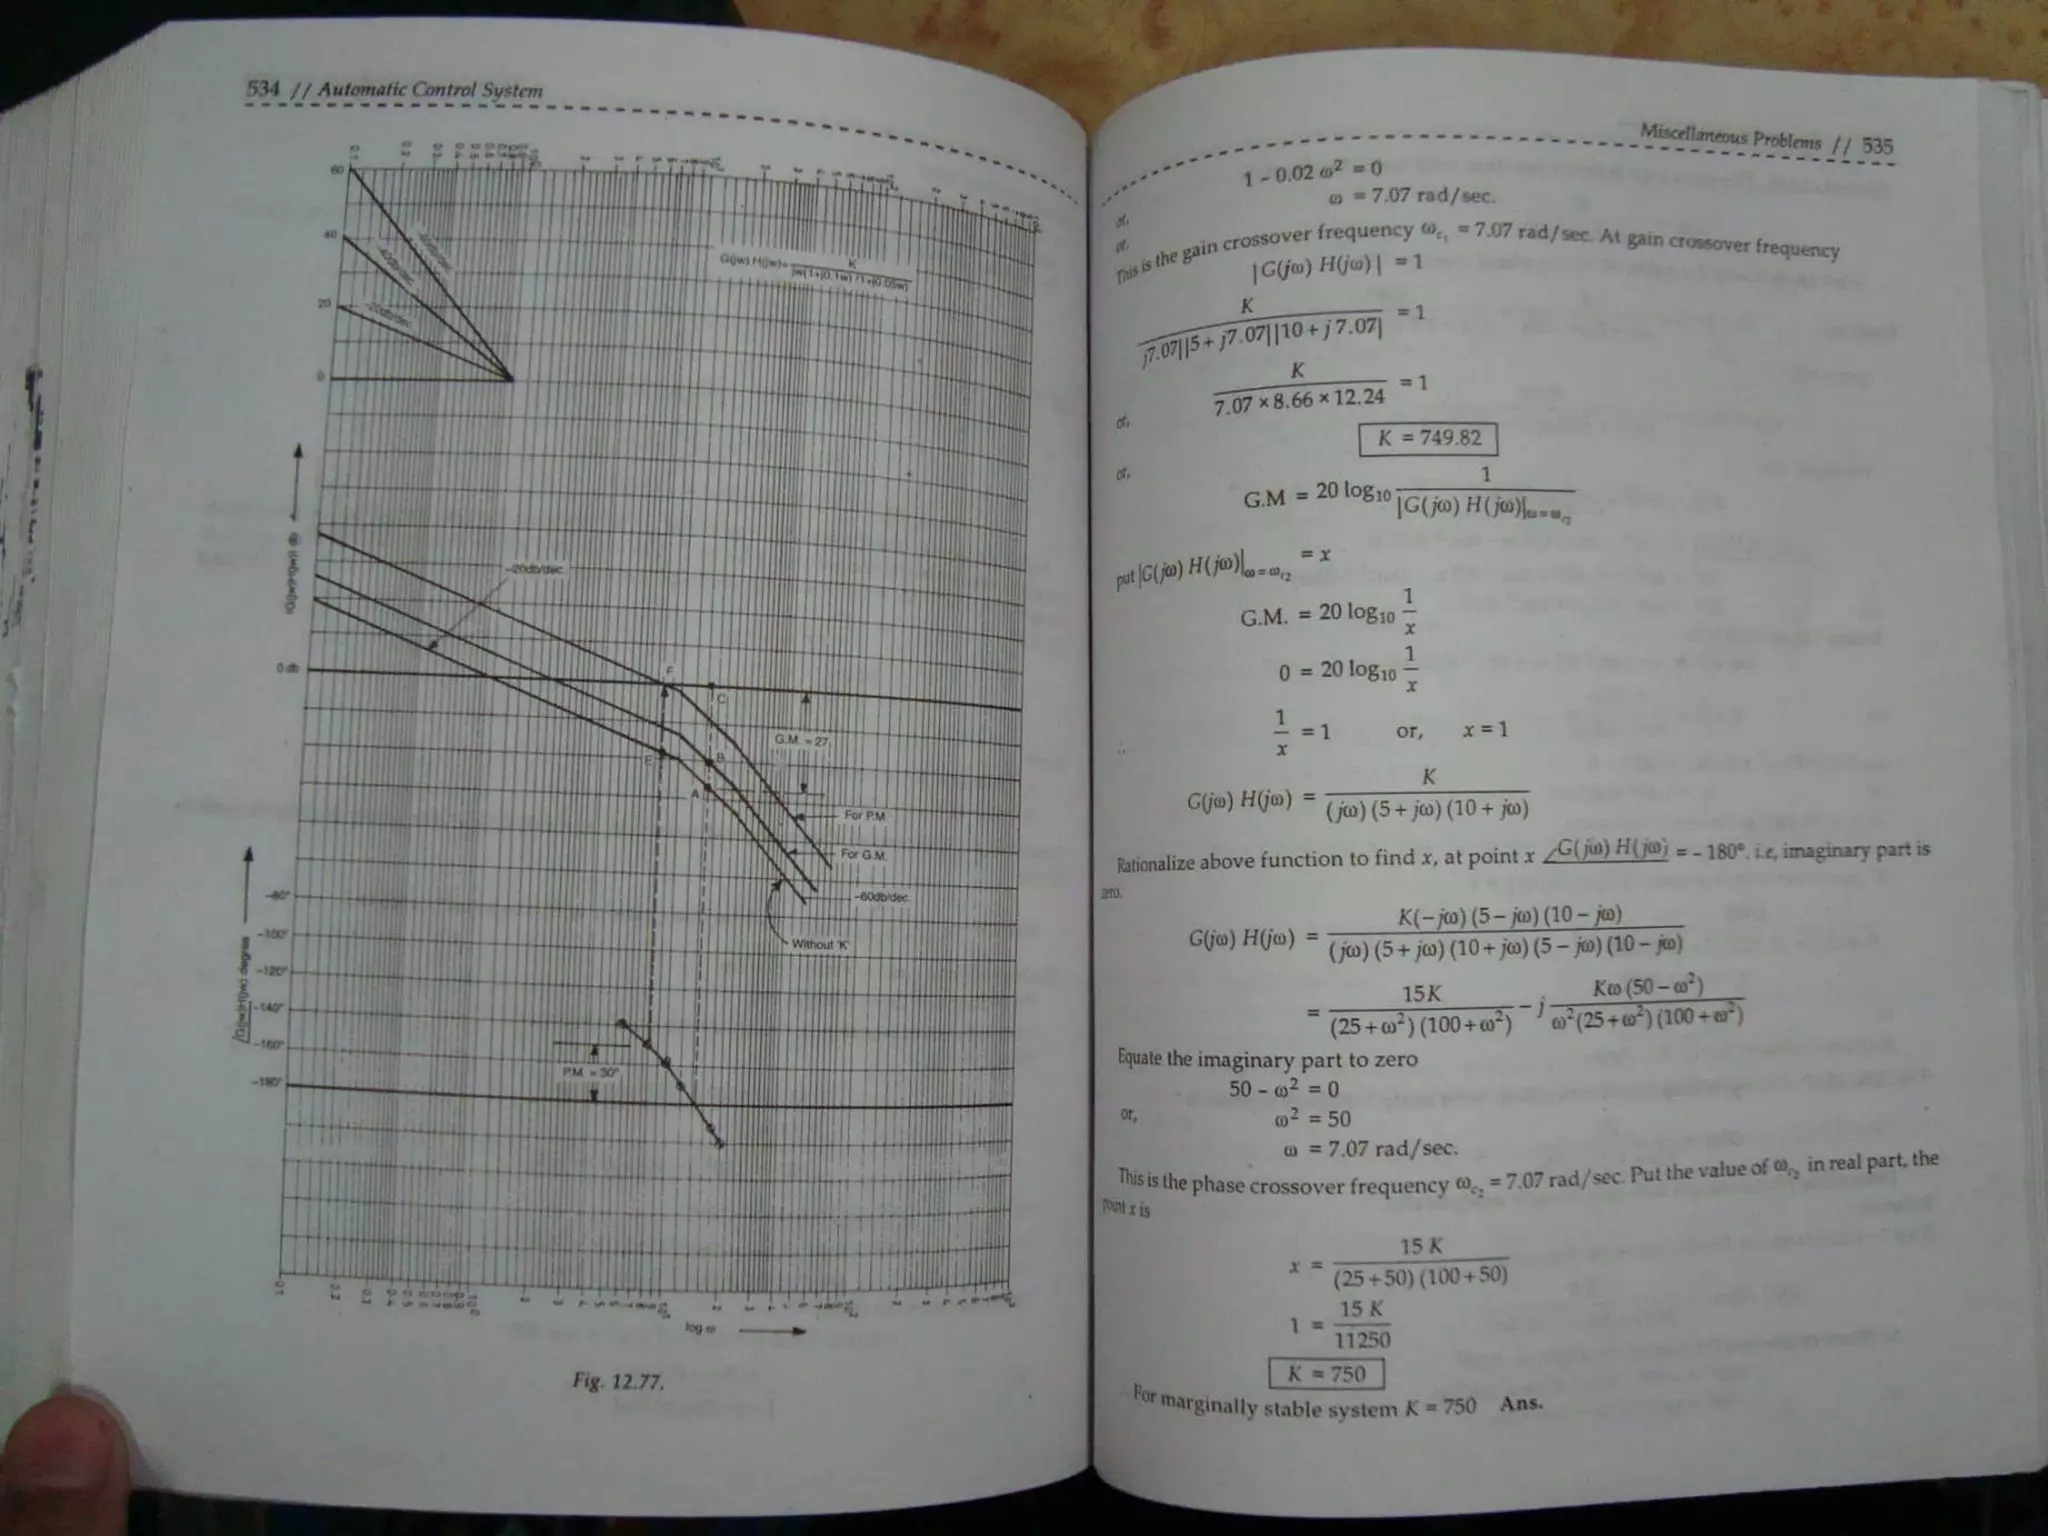 534 // Automatic Control System
60
40
20
0
-60db/dec.
-40db/dec.
-20db/dec.
G(jw) H(jw)= K / jw(1+j0.1w) (1+j0.05w)
|G(jw)H(jw)| db
-20db/dec.
0 db
F
C
G.M. = 27
E
B
A
For P.M.
For G.M.
-60db/dec.
Without 'K'
-80°
-100°
-120°
-140°
-160°
-180°
/G(jw)H(jw) degree
P.M. = 30°
log ω
Fig. 12.77.
Miscellaneous Problems // 535
1 – 0.02 ω² = 0
or, ω = 7.07 rad/sec.
or,
This is the gain crossover frequency ω_c₁ = 7.07 rad/sec. At gain crossover frequency
|G(jω) H(jω)| = 1
K / j7.07||5 + j7.07||10 + j 7.07| = 1
or, K / 7.07 × 8.66 × 12.24 = 1
or, K = 749.82
G.M = 20 log₁₀ 1 / |G(jω) H(jω)|ω = ω_c₂
put |G(jω) H(jω)|ω = ω_c₂ = x
G.M. = 20 log₁₀ 1/x
0 = 20 log₁₀ 1/x
∴ 1/x = 1 or, x = 1
G(jω) H(jω) = K / (jω) (5 + jω) (10 + jω)
Rationalize above function to find x, at point x ∠G(jω) H(jω) = – 180°. i.e, imaginary part is
zero.
G(jω) H(jω) = K(– jω) (5 – jω) (10 – jω) / (jω) (5 + jω) (10 + jω) (5 – jω) (10 – jω)
= 15K / (25 + ω²) (100 + ω²) – j Kω (50 – ω²) / ω² (25 + ω²) (100 + ω²)
Equate the imaginary part to zero
50 – ω² = 0
or, ω² = 50
ω = 7.07 rad/sec.
This is the phase crossover frequency ω_c₂ = 7.07 rad/sec. Put the value of ω_c₂ in real part, the
point x is
x = 15 K / (25 + 50) (100 + 50)
1 = 15 K / 11250
K = 750
∴ For marginally stable system K = 750 Ans.